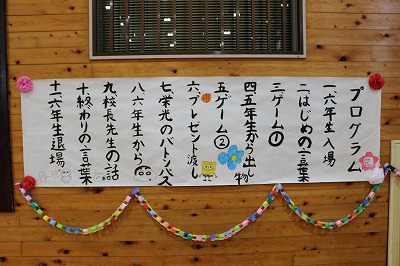 プログラム
一六年生入場
二はじめの言葉
三ゲーム①
四五年生から出し物
五ゲーム②
六プレゼント渡し
七栄光のバトンパス
八六年生から
九校長先生の話
十終わりの言葉
十一六年生退場